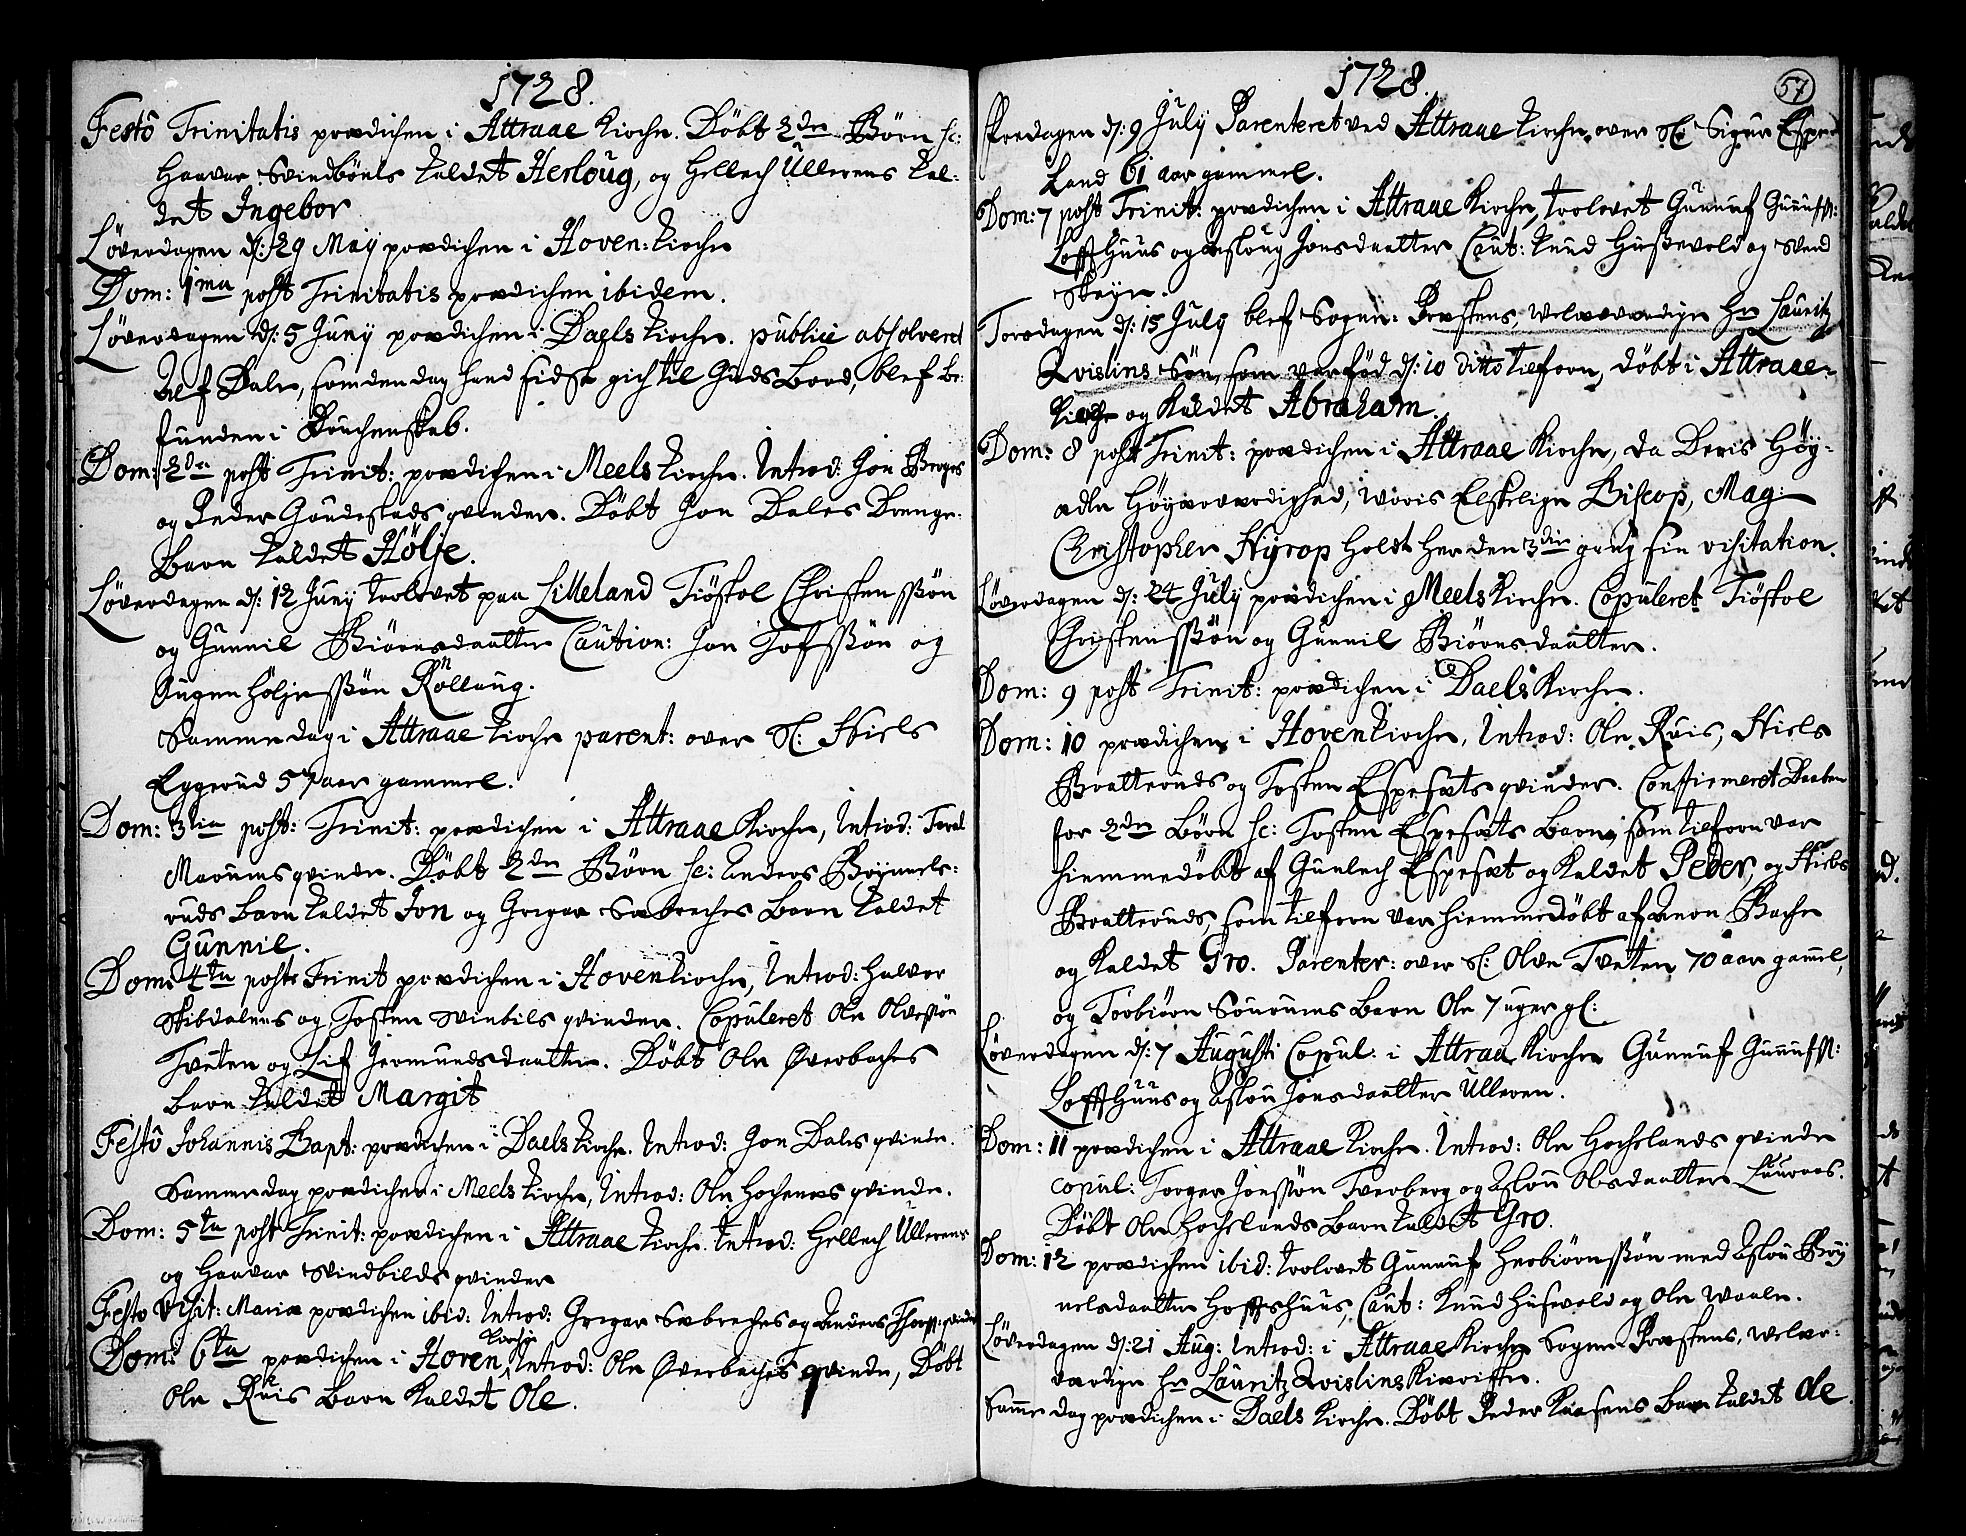 1728.
Festô Trinitatis prædichen i Attraae Kirche. Döbt 2de Börn sc:
Haavar Svindböels kaldet Herloug, og Hellech Ullerens kal-
det Ingebor
Löverdagen d: 29 Maij prædichen i Hoven: kirche
Dom: 1ma post Trinitatis prædichen ibidem.
Löverdagen d: 5 Junij prædichen i Daels kirche. publicè absolveret
Alf Dale, som den dag hand sidst gich til Guds Bord, blef be-
funden i Druchenskab.
Dom: 2da post Trinit: prædichen i Meels kirche. Introd: Jon Berges
og Peder Gaudestads qvinder. Döbt Jon Dales Drenge-
Barn kaldet Hölje.
Löverdagen d: 12 Junij troelovet paa Lilleland Tiöstol Christenssön
og Gunnil Biörnsdaatter Caution: Jon Tofssön og
Augen Höljessön Röllaug.
Samme dag i Attraae kirche parent: over Sl: Niels
Eggerud 57 aar gammel.
Dom: 3tia post: Trinit: prædichen i Attraae Kirche, Introd: Toral
Marums qvinde. Döbt 2de Börn sc: Anders Brÿnnels-
ruds Barn kaldet Jon og Gregar Sæbreches Barn kaldet
Gunnil.
Dom: 4ta post Trinit prædichen i Hovenkirche, Introd: Halvor
Skibdalens og Tosten Svinbils qvinder. Copuleret Ole Olvessön
Tveten og Lif Jermundsdaatter. Döbt Ole Øverbøches
Barn kaldet Margit
Festô Johannis Bapt: prædichen i Daels kirche. Introd: Jon Dales qvinde.
Samme dag prædichen i Meels kirche, Introd: Ole Hochenæs qvinde.
Dom: 5ta post Trinit: prædichen i Attraae kirche. Introd: Hellech Ullerens
og Haavar Svindbilds qvinder
Festo Visit: Mariæ prædichen ibid: Introd: Gregar Sæbreches og Anders qvinder
Dom: 6ta prædichen i Hoven Kirche, Introd: Ole Øverbøches qvinde, Döbt
Ole Ruis Barn Kaldet Ole.
1728. 57
Fredagen d: 9 Julij Parenteret ved Attraae kirche over Sl: Sigur Espe-
Land 61 aar gammel.
Dom: 7 post Trinit: prædichen i Attraae Kirche, troelovet Gunnuf Gunnufss:
Loffthuus og Asloug Jonsdaatter Caut: Knud Husevold og Svend
Skeje.
Torsdagen d: 15 Julij blef Sogne-Præstens, Velærværdige Hr Lauritz
Qvislins Sön, som var föd d: 10 ditto tilforn, döbt i Attraae-
kirche og kaldet Abraham.
Dom: 8 post Trinit: prædichen i Attraae Kirche, da Deris Höÿ-
ædle Höÿærværdighed, Woris Elskelige Biscop, Mag:
Christopher Nÿrop holdt her den 3die gang sin visitation.
Löverdagen d: 24 Julij prædichen i Meels Kirche. Copuleret Tiöstol
Christenssön og Gunnil Biörnsdaatter.
Dom: 9 post Trinit: prædichen i Daels Kirche.
Dom: 10 prædichen i Hoven kirche, Introd: Ole Ruis, Niels
Bratteruds og Tosten Espesets qvinder. Confirmeret Daaben
for 2de Börn sc: Tosten Espesets Barn, som tilforn var
hiemmedöbt af Gunlech Espeset og Kaldet Peder, og Niels
Bratteruds, som tilforn var hiemmedöbt af Aven Bache
og Kaldet Gro. Parenter: over Sl: Olve Tveten 70 aar gamel,
og Torbiörn Soürums Barn Ole 7 uger gl:
Löverdagen d: 7 Augusti Copul: i Attraae Kirche Gunnuf Gunnufss:
Loffthuus og Aslou Jonsdaatter Ulleren.
Dom: 11 prædichen i Attraae Kirche. Introd: Ole Hochslands qvinde
copul: Torger Jonssön Tverberg og Aslou Olsdaatter Lauraas.
Döbt Ole Hochslands Barn kaldet Gro.
Dom: 12 prædichen ibid: troelovet Gunnuf Herbiörnssön med Aslou Brÿ-
nelsdaatter Hoffshuus, Caut: Knud Husevold og Ole Waale.
Löverdagen d: 21 Aug: Introd: i Attraae Kirche Sogne-Præstens, Velær-
værdige Hr Lauritz Qvislins Kieriste.
Samme dag prædichen i Daels Kirche. Döbt Peder Kaasens Barn kaldet Ole